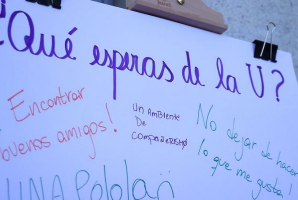 ¿Qué esperas de la U?
Encontrar
buenos amigos!
Un ambiente
de
compañerismo
No dejar de hacer
lo que me gusta!
UNA Pololah